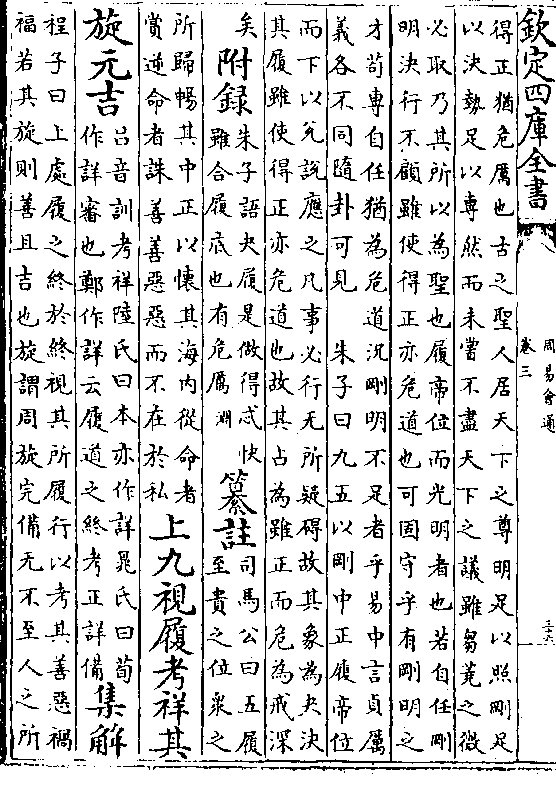 欽定四庫全書
周易會通
卷三
三六
得正猶危厲也古之聖人居天下之尊明足以照剛足
以決勢足以專然而未嘗不盡天下之議雖芻蕘之微
必取乃其所以為聖也履帝位而光明者也若自任剛
明決行不顧雖使得正亦危道也可固守乎有剛明之
才苟專自任猶為危道況剛明不足者乎易中言貞厲
義各不同隨卦可見 朱子曰九五以剛中正履帝位
而下以兊說應之凡事必行无所疑碍故其象為夬決
其履雖使得正亦危道也故其占為雖正而危為戒深
矣附録朱子語夬履是做得忒快
雖合履底也有危厲淵
纂註司馬公曰五履
至貴之位衆之
所歸暢其中正以懷其海内從命者
賞逆命者誅善善惡惡而不在於私
上九視履考祥其
旋元吉吕音訓考祥陸氏曰本亦作詳晁氏曰荀
作詳審也鄭作詳云履道之終考正詳備
集解
程子曰上處履之終於終視其所履行以考其善惡禍
福若其旋則善且吉也旋謂周旋完備无不至人之所